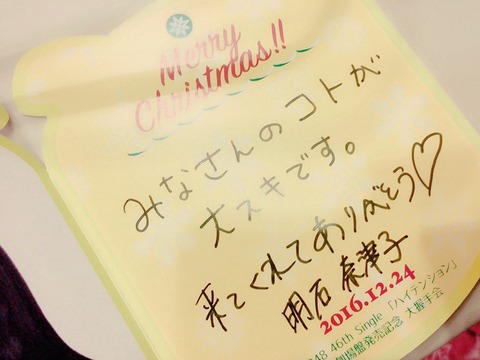 Merry
Christmas!!
みなさんのコトが
大スキです。
来てくれてありがとう♡
明石 奈津子
2016.12.24
B48 46th Single「ハイテンション」
劇場盤発売記念 大握手会